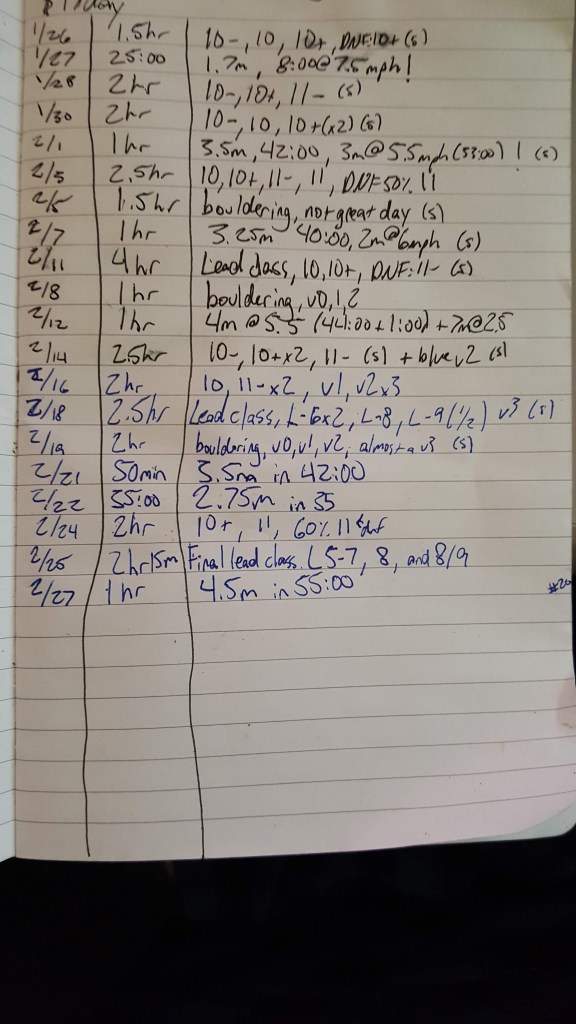 1/26 1.5hr 10-, 10, 10+, DNF:10+ (s)
1/27 25:00 1.7m, 8:00@7.5mph!
1/28 2hr 10-, 10+, 11- (s)
1/30 2hr 10-, 10, 10+(x2) (s)
2/1 1hr 3.5m, 42:00, 3m@5.5mph (33:00)! (s)
2/3 2.5hr 10, 10+, 11-, 11, DNF 50% 11
2/5 1.5hr bouldering, not great day (s)
2/7 1hr 3.25m 40:00, 2m@6mph (s)
2/11 4hr Lead class, 10, 10+, DNF:11- (s)
2/8 1hr bouldering, v0, 1, 2
2/12 1hr 4m @ 5.5 (44:00+1:00) + 7m@2.5
2/14 2.5hr 10-, 10+x2, 11- (s) + blue v2 (s)
2/16 2hr 10, 11-x2, v1, v2x3
2/18 2.5hr Lead class, L-6x2, L-8, L-9(1/2) v3 (s)
2/19 2hr bouldering, v0, v1, v2, almost a v3 (s)
2/21 50min 3.5m in 42:00
2/22 35:00 2.75m in 35
2/24 2hr 10+, 11, 60% 11 dnf
2/25 2hr15m Final lead class. L5-7, 8, and 8/9
2/27 1hr 4.5m in 55:00